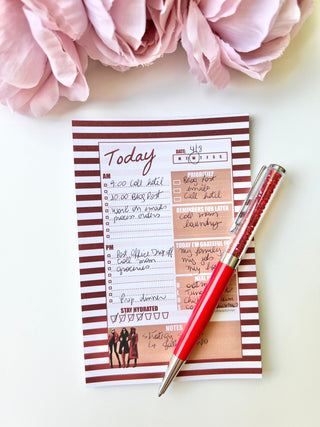 Today
DATE: 4/3
M T W T F S S
AM
9:00 Call hotel
10:00 Blog Post
Work on emails
process orders
PRIORITIES
Blog Post
emails
Call hotel
REMINDERS FOR LATER
call mom
laundry
PM
Post Office Drop off
Call mom
groceries
Prep dinner
TODAY I'M GRATEFUL FO
my family
my job
my
STAY HYDRATED
NOTES